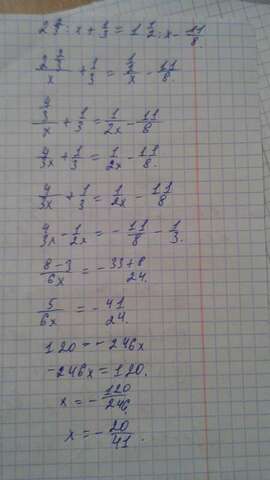 2 2/3 : x + 1/3 = 1 1/2 : x - 11/8
2 2/3 / x + 1/3 = 1 1/2 / x - 11/8.
4/3 / x + 1/3 = 1/2x - 11/8
4/3x + 1/3 = 1/2x - 11/8.
4/3x + 1/3 = 1/2x - 11/8
4/3x - 1/2x = - 11/8 - 1/3.
8-3/6x = - 33+8/24.
5/6x = - 41/24.
120 = - 246x
-246x = 120.
x = - 120/246
x = - 20/41.